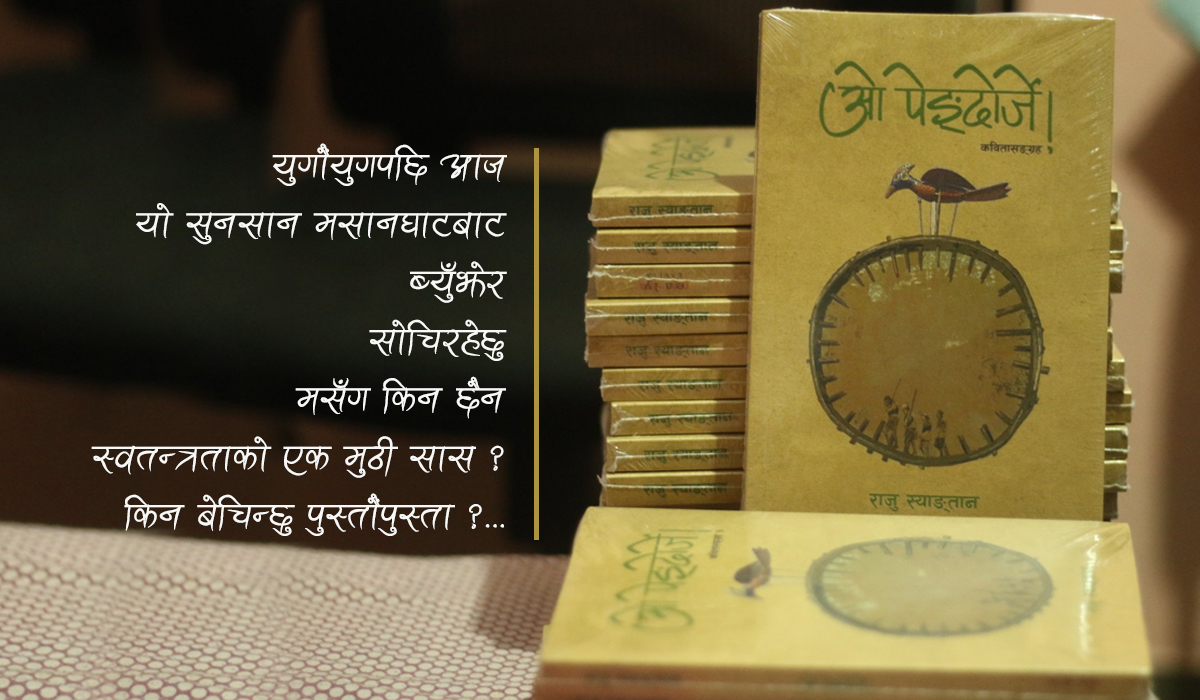 युगौंयुगपछि आज
यो सुनसान मसानघाटबाट
ब्युँझेर
सोचिरहेछु
मसँग किन छैन
स्वतन्त्रताको एक मुठी सास ?
किन बेचिन्छु पुस्तौंपुस्ता ?...
ओ पेङ्दोर्जे!
कवितासङ्ग्रह
राजु स्याङ्तान
राजु स्याङ्तान
राजु स्याङ्तान
राजु स्याङ्तान
राजु स्याङ्तान
राजु स्याङ्तान
राजु स्याङ्तान
राजु स्याङ्तान
राजु स्याङ्तान
ओ पेङ्दोर्जे!